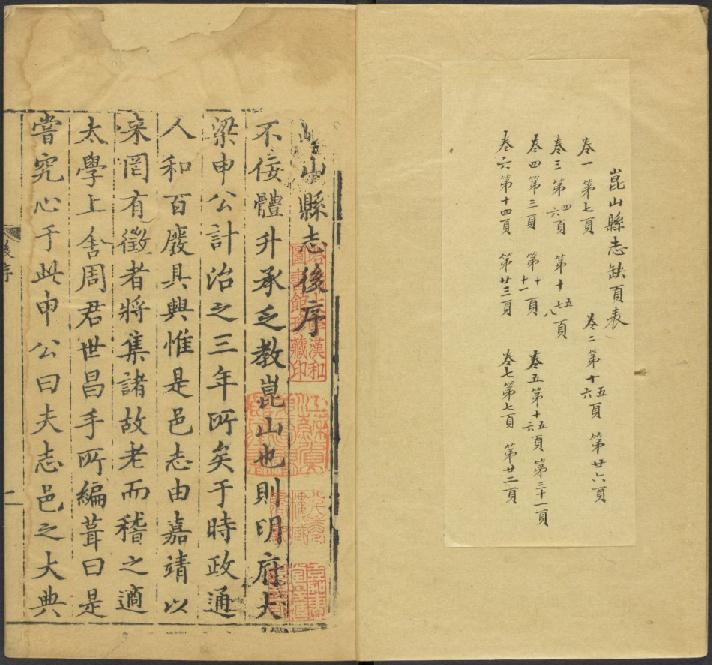 崑山縣志缺頁表
卷一 第七頁 卷二 第十五六頁 第廿六頁
卷三 第四六頁 第十五七八頁
卷四 第三頁 第十十一頁 卷五 第十五六頁 第三十一頁
卷六 第十四頁 第廿三頁 卷七 第七頁 第廿二頁
山縣志後序
不佞體升承乏教崑山也則明府大
梁申公計治之三年所矣于時政通
人和百廢具興惟是邑志由嘉靖以
來罔有徵者將集諸故老而稽之適
太學上舍周君世昌手所編葺曰是
嘗究心于此申公曰夫志邑之大典
後序